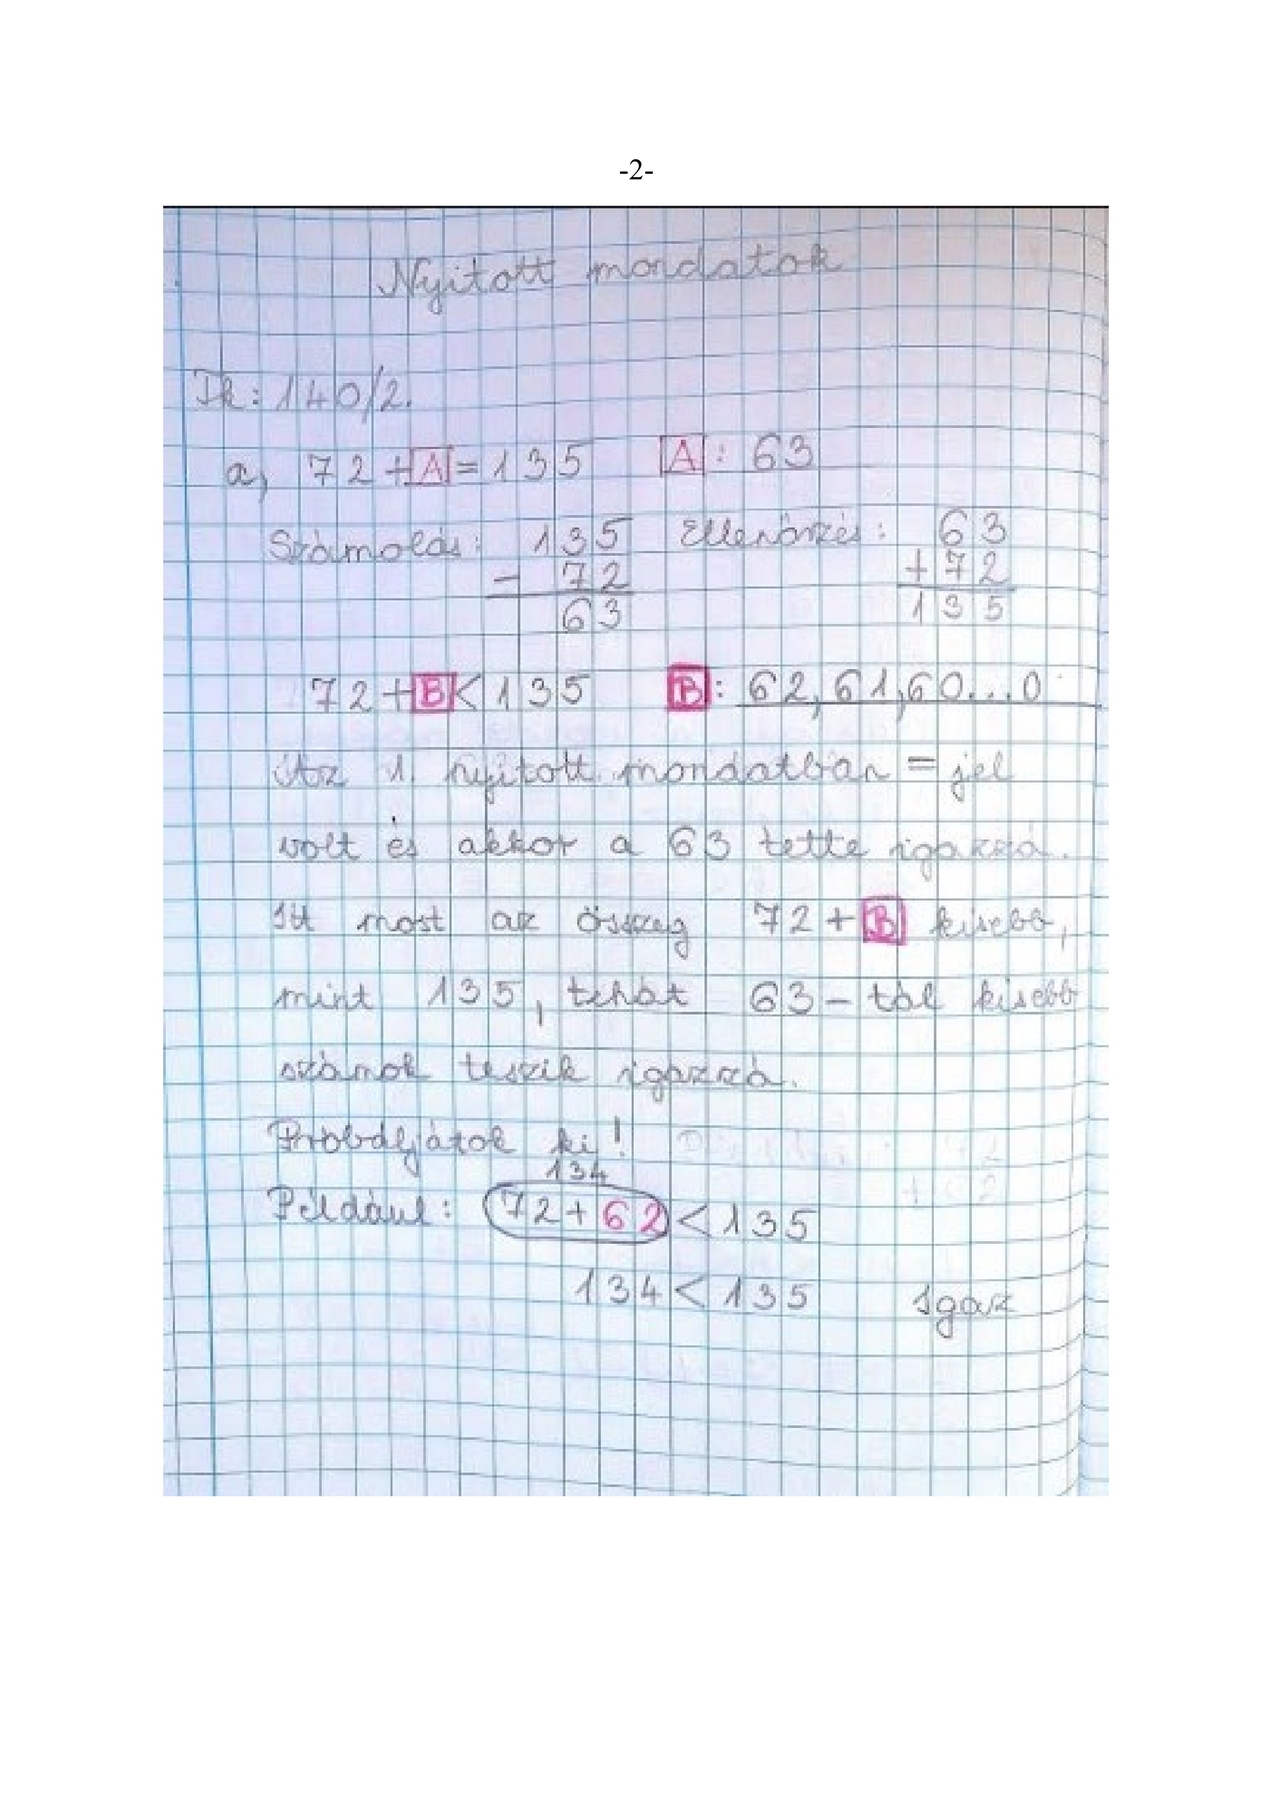 -2-
Nyitott mondatok
Tk: 140/2.
a, 72+A=135 A: 63
Számolás: 135 Ellenőrzés: 63
- 72 +72
63 135
72+B<135 B: 62,61,60...0
Az 1. nyitott mondatban = jel
volt és akkor a 63 tette igazzá.
Itt most az összeg 72+B kisebb,
mint 135, tehát 63-tól kisebb
számok teszik igazzá.
Próbáljátok ki!
134
Például: 72+62<135
134<135 Igaz